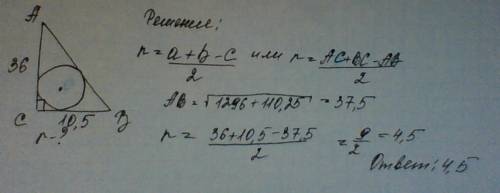 A
36
C
10,5
B
r-?
Решение:
r = a+b-c / 2 или r = AC+BC-AB / 2
AB = √1296+110,25 = 37,5
r = 36+10,5-37,5 / 2 = 9/2 = 4,5
Ответ: 4,5